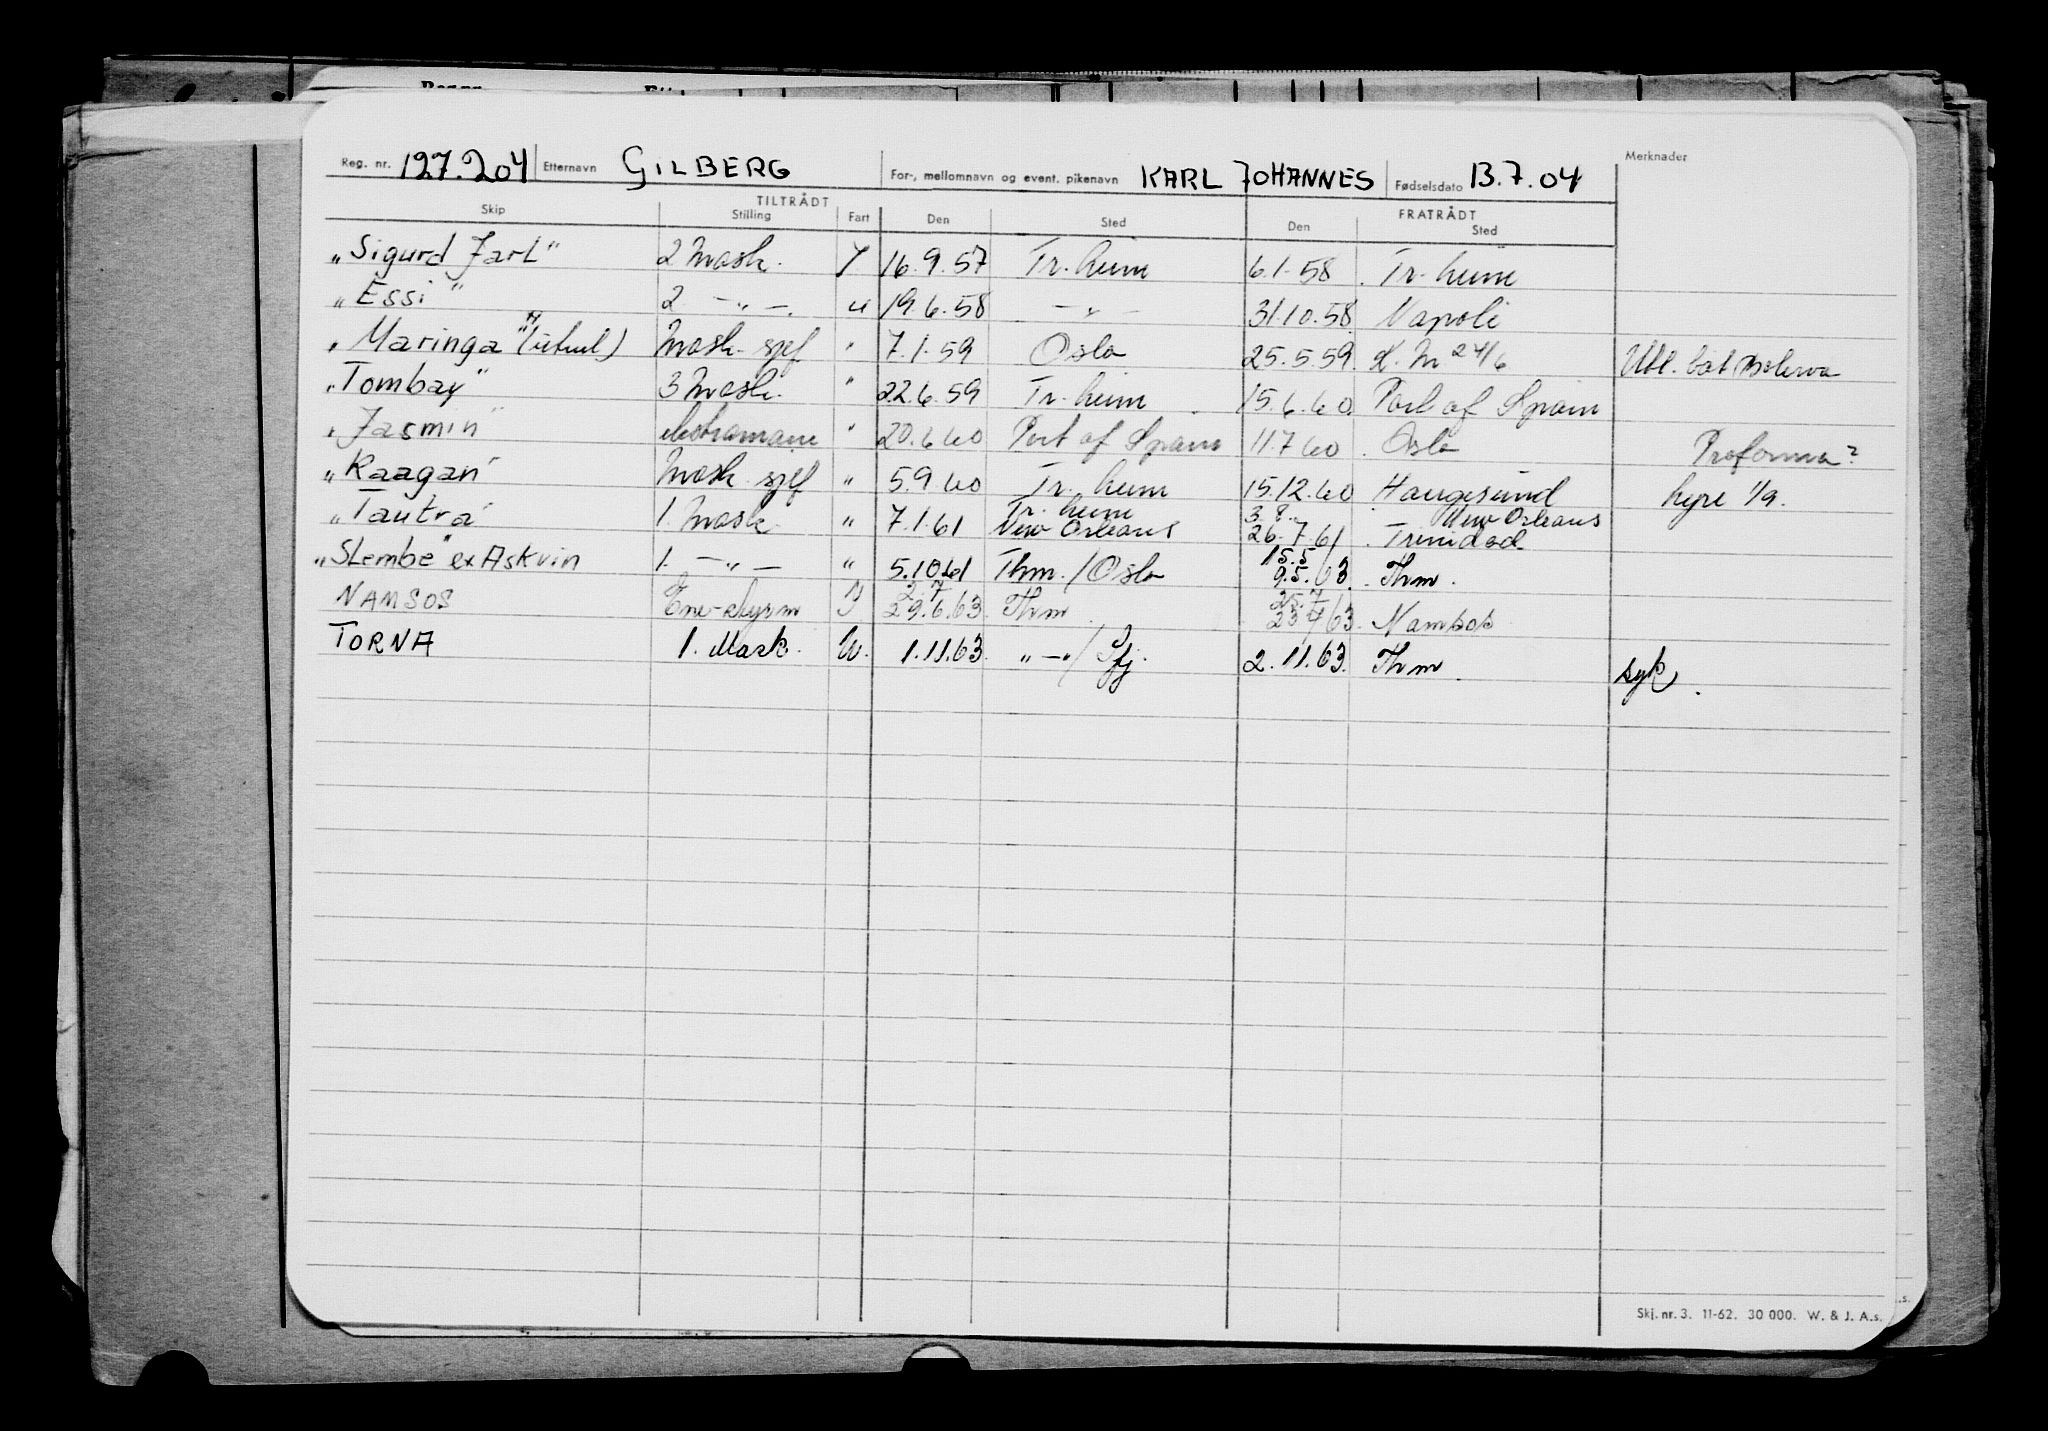 Reg. nr. 127.204 Etternavn GILBERG For-, mellomnavn og event. pikenavn KARL JOHANNES Fødselsdato 13.7.04 Merknader
TILTRÅDT FRATRÅDT
Skip Stilling Fart Den Sted Den Sted
"Sigurd Jarl" 2 mask. 16.9.57 Tr.heim 6.1.58 Tr.heim
"Essi" 2 — " — u 19.6.58 — " — 31.10.58 Napoli
"Maringa" Mask. sjef " 7.1.59 Oslo 25.5.59 24/6 Utl. båt
"Tombay" 3 Mask. " 22.6.59 Tr.heim 15.6.60 Port of Spain
"Jasmin" " 20.6.60 Port of Spain 11.7.60 Oslo Proforma?
"Raagan" Mask. sjef " 5.9.60 Tr.heim 15.12.60 Haugesund hyre 1/9.
"Tautra" 1. Mask. " 7.1.61 Tr.heim New Orleans 3.8. 26.7.61 New Orleans Trinidad
"Slembe" ex Askvin 1. — " — " 5.10.61 Thm. / Oslo 15.5 9.5.63 Thm.
NAMSOS 2.7 29.6.63 Thm 25.7 63 Namsos
TORNA 1. Mask. U. 1.11.63 " — " / 2.11.63. Thm. syk.
Skj. nr. 3. 11-62. 30 000. W. & J. A.s.